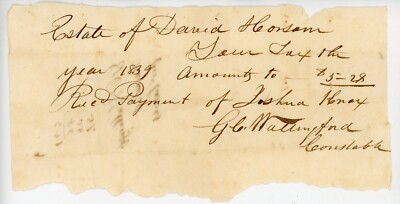 Estate of David Horsom
Your Tax the
year 1839 Amounts to $5-28
Recd Payment of Joshua Knox
G C Wallingford
Constable